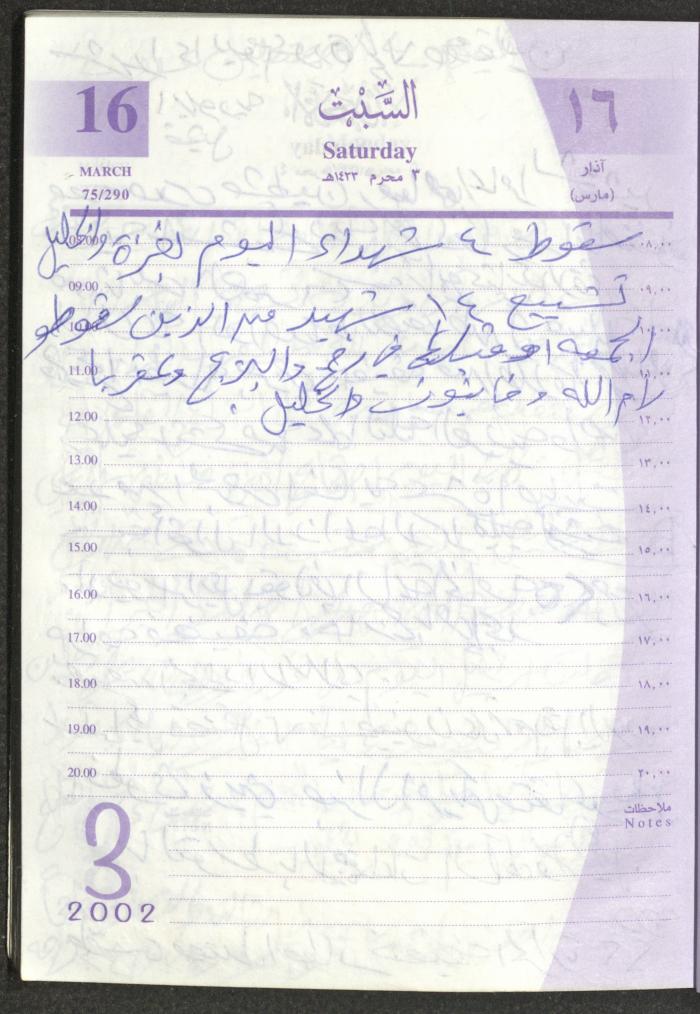 16
السَّبْت
١٦
Saturday
MARCH
75/290
٣ محرم ١٤٢٣هـ
آذار
(مارس)
سقوط ٤ شهداء اليوم بغزة والخليل
08.00
٠٨,٠٠
09.00
٠٩,٠٠
تشييع ١٤ شهيد من الذين سقطو
10.00
١٠,٠٠
الجمعه او قبلها في رفح والبريج وعقربا
11.00
١١,٠٠
رام الله وخانيونس والخليل.
12.00
١٢,٠٠
13.00
١٣,٠٠
14.00
١٤,٠٠
15.00
١٥,٠٠
16.00
١٦,٠٠
17.00
١٧,٠٠
18.00
١٨,٠٠
19.00
١٩,٠٠
20.00
٢٠,٠٠
ملاحظات
Notes
3
2002